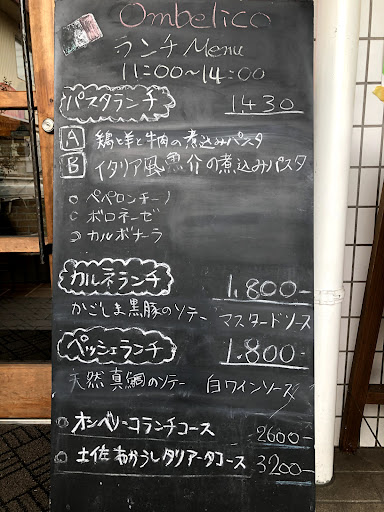 Ombelico
ランチ Menu
11:00~14:00
パスタランチ 1,430
A 鶏と羊と牛肉の煮込みパスタ
B イタリア風魚介の煮込みパスタ
○ ペペロンチーノ
○ ボロネーゼ
○ カルボナーラ
カルネランチ 1,800-
かごしま黒豚のソテー マスタードソース
ペッシェランチ 1,800-
天然真鯛のソテー 白ワインソース
○ オンベリーコランチコース 2600-
○ 土佐あかうしタリアータコース 3200-